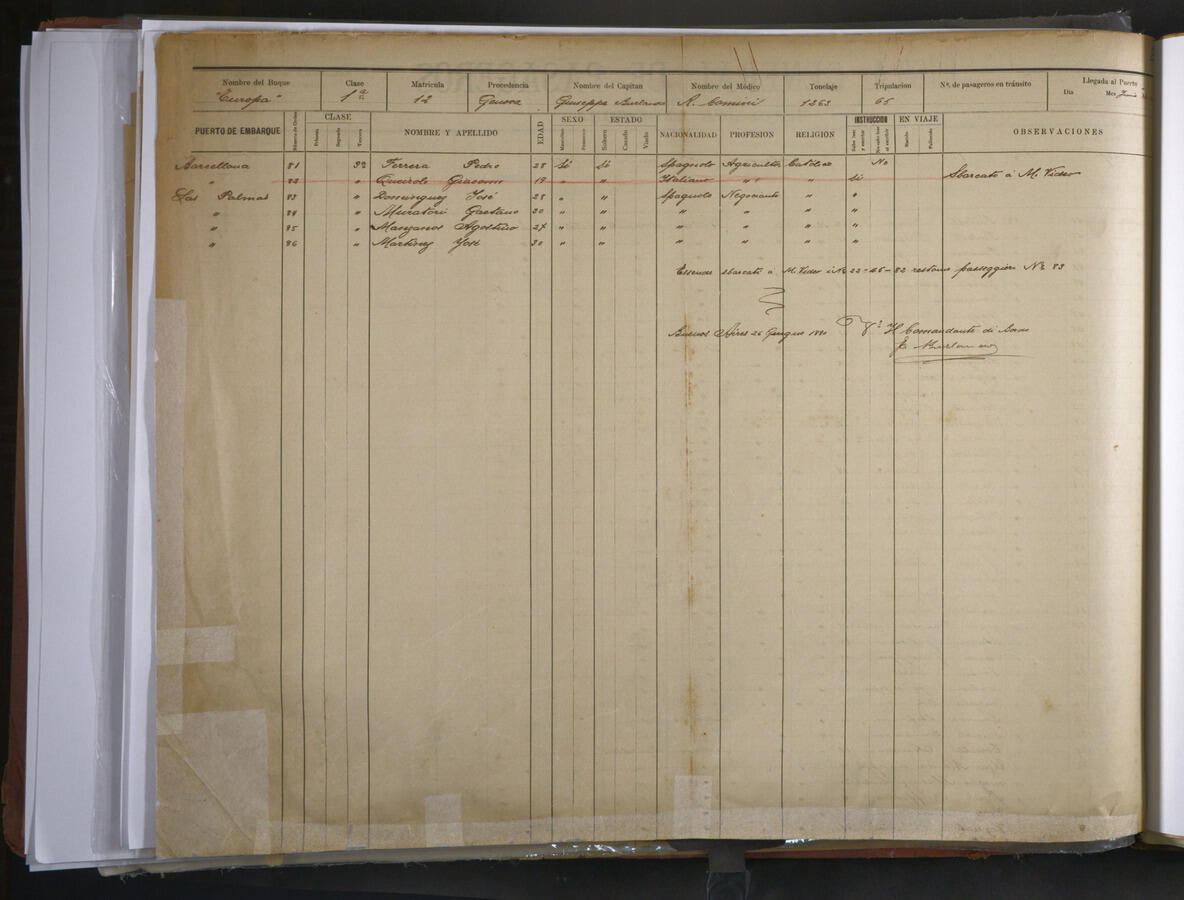 Nombre del Buque Clase Matrícula Procedencia Nombre del Capitan Nombre del Médico Tonelaje Tripulacion Nº. de pasageros en tránsito Llegada al Puerto
"Europa" 1ª 12 Genova Giuseppe R. 1263 65 Dia Mes Junio
PUERTO DE EMBARQUE Número de Orden CLASE NOMBRE Y APELLIDO EDAD SEXO ESTADO NACIONALIDAD PROFESION RELIGIÓN INSTRUCCIÓN EN VIAJE OBSERVACIONES
Primera Segunda Tercera Masculino Femenino Soltero Casado Viudo Sabe leer y escribir No sabe leer ni escribir Nacido Fallecido
Barcellona 81 3ª Ferrera Pedro 28 Si Si Spagnolo Agricultor Católico No
" 82 " Queirolo Giacomo 19 " " Italiano " " Si Sbarcato à M. Video
Las Palmas 83 " Dominguez José 28 " " Spagnolo Negociante " "
" 84 " Muratori Gaetano 30 " " " " " "
" 85 " Manzanos Agostino 27 " " " " " "
" 86 " Martinez José 30 " " " " " "
Essendo sbarcato à M. Video i Nº 22-45-82 restano passeggieri Nº 83
Buenos Aires 26 Giugno Il Comandante di bordo